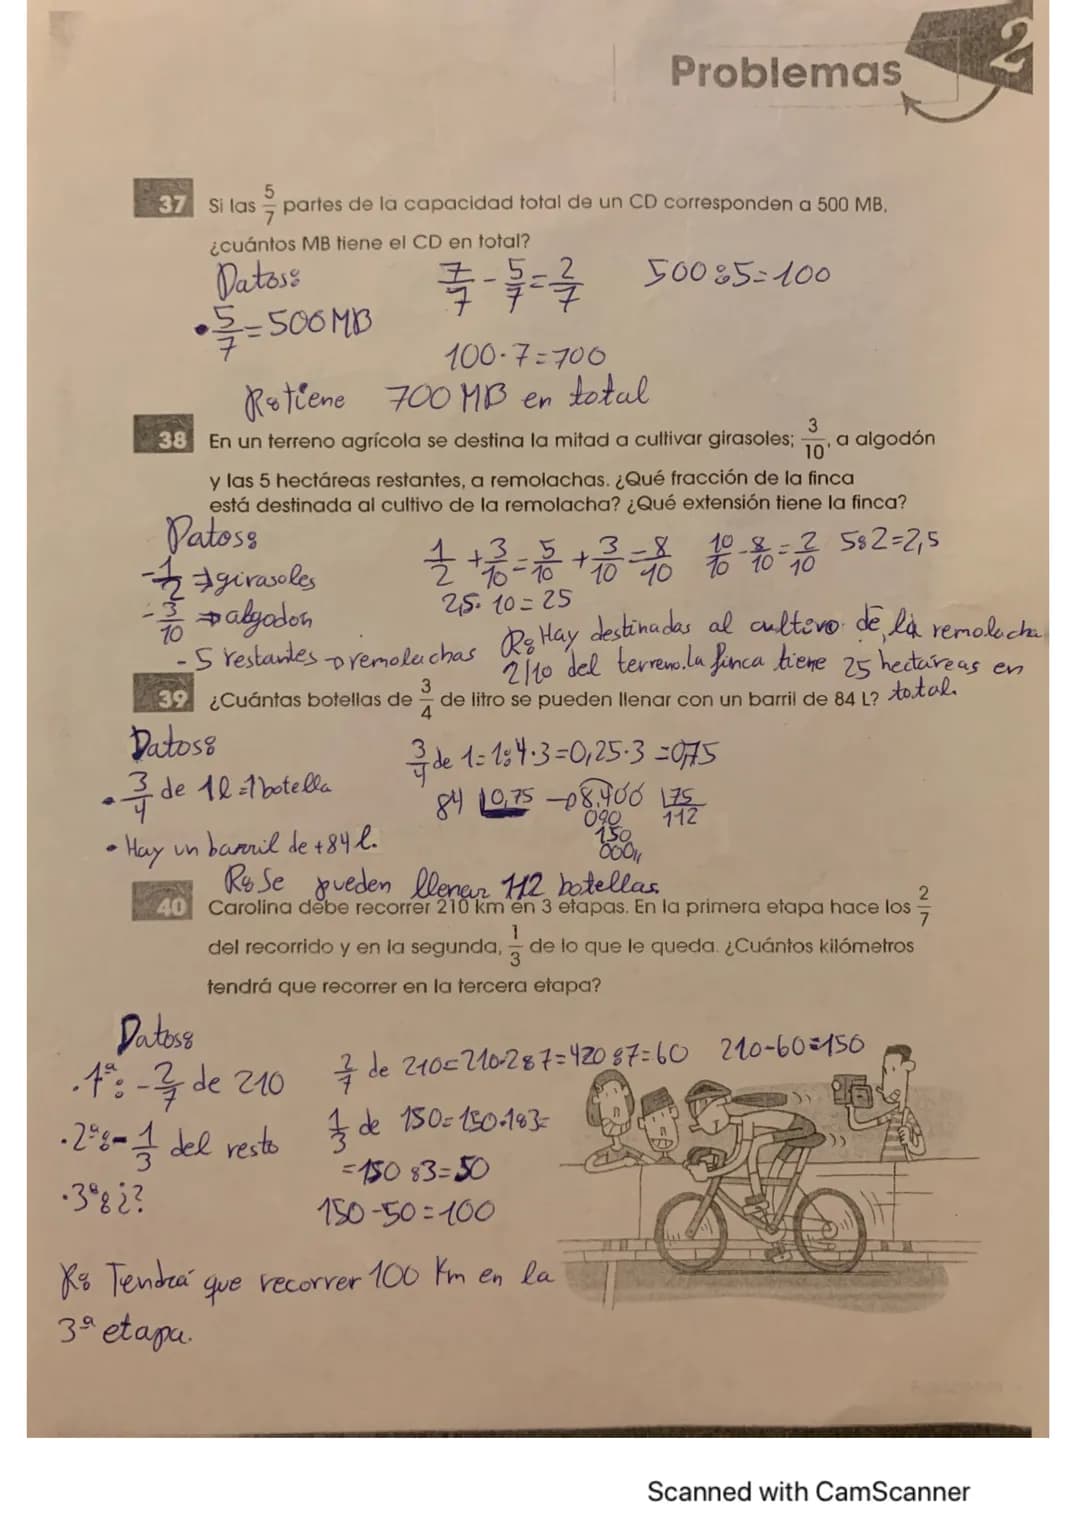 Problemas 2
37 Si las 5/7 partes de la capacidad total de un CD corresponden a 500 MB,
¿cuántos MB tiene el CD en total?
Datos:
7/7 - 5/7 = 2/7 500:5=100
• 5/7 = 500 MB
100·7=700
R: tiene 700 MB en total
38 En un terreno agrícola se destina la mitad a cultivar girasoles; 3/10, a algodón
y las 5 hectáreas restantes, a remolachas. ¿Qué fracción de la finca
está destinada al cultivo de la remolacha? ¿Qué extensión tiene la finca?
Datos:
1/2 + 3/10 = 5/10 + 3/10 = 8/10 10/10 - 8/10 = 2/10 5:2=2,5
- 1/2 ⇒ girasoles
2,5·10=25
- 3/10 ⇒ algodon
- 5 restantes → remolachas
R: Hay destinadas al cultivo de la remolacha
2/10 del terreno. La finca tiene 25 hectáreas en
total.
39 ¿Cuántas botellas de 3/4 de litro se pueden llenar con un barril de 84 L?
Datos:
3/4 de 1=1:4·3=0,25·3=0,75
• 3/4 de 1l=1 botella
84 0,75 → 8.400 75
090 112
150
000
• Hay un barril de +84 l.
R: Se pueden llenar 112 botellas
40 Carolina debe recorrer 210 km en 3 etapas. En la primera etapa hace los 2/7
del recorrido y en la segunda, 1/3 de lo que le queda. ¿Cuántos kilómetros
tendrá que recorrer en la tercera etapa?
Datos:
2/7 de 210=210·2:7=420:7=60 210-60=150
• 1ª: - 2/7 de 210
1/3 de 150=150·1:3=
• 2ª: - 1/3 del resto
=150:3=50
• 3ª: ¿?
150-50=100
R: Tendrá que recorrer 100 Km en la
3ª etapa.
Scanned with CamScanner